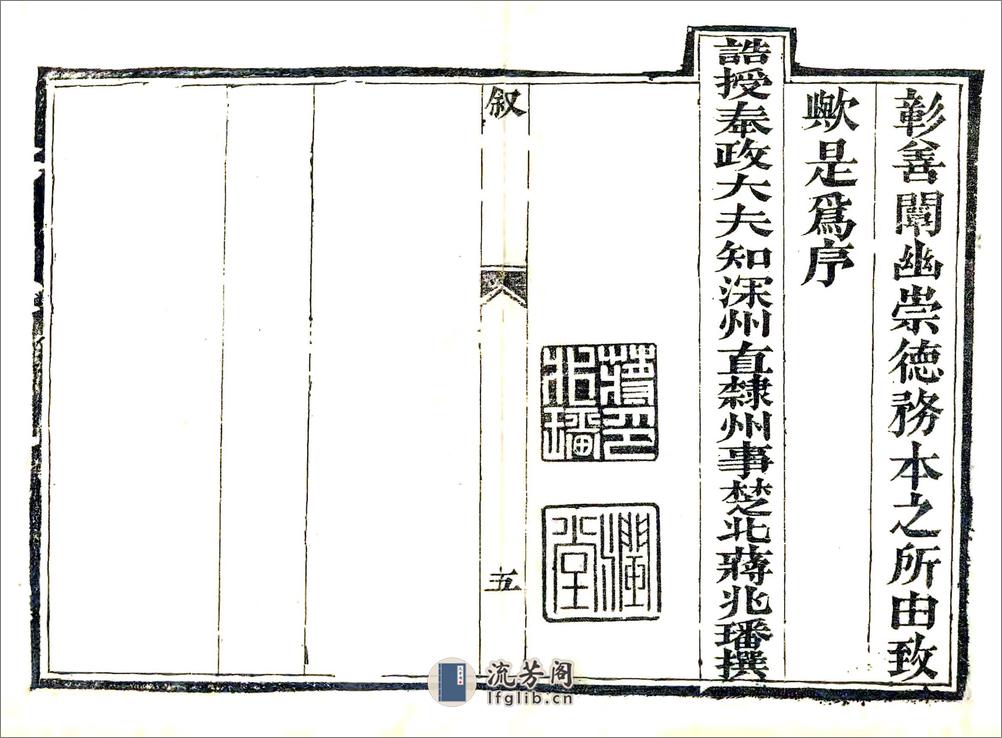 彰善闡幽崇德務本之所由致
歟是爲序
誥授奉政大夫知深州直隸州事楚北蔣兆璠撰
蔣印兆璠
潤堂
叙
五
流芳阁
lfglib.cn